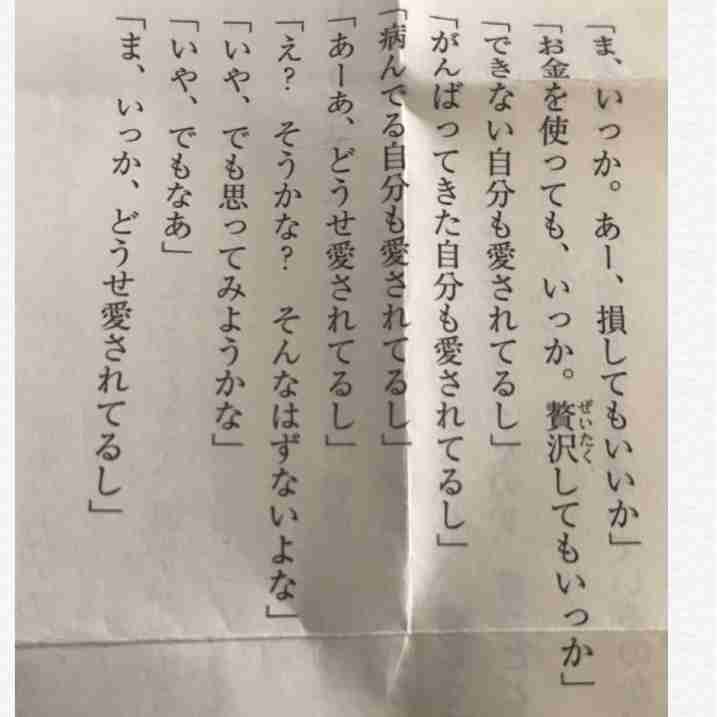 「ま、いっか。あー、損してもいいか」
「お金を使っても、いっか。贅沢してもいっか」
ぜいたく
「できない自分も愛されてるし」
「がんばってきた自分も愛されてるし」
「病んでる自分も愛されてるし」
「あーあ、どうせ愛されてるし」
「え？　そうかな？　そんなはずないよな」
「いや、でも思ってみようかな」
「いや、でもなあ」
「ま、いっか、どうせ愛されてるし」